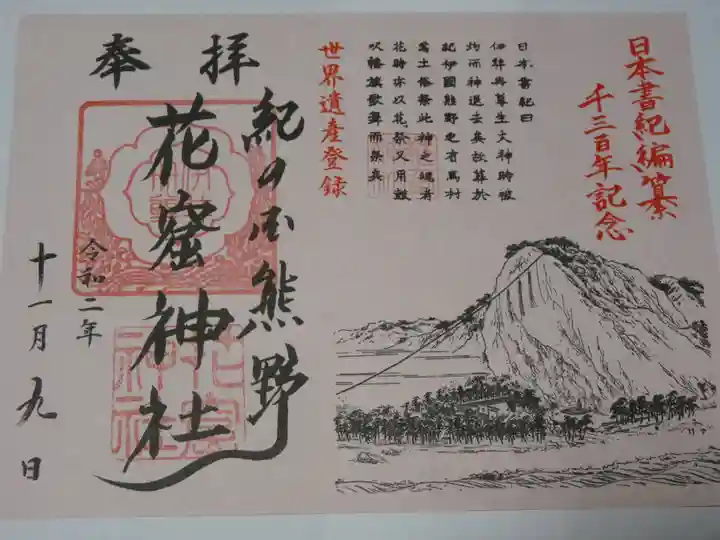 日本書紀編纂
千三百年記念
日本書紀曰
伊弉冉尊生火神時被
灼而神退去矣故葬於
紀伊國熊野之有馬村
焉土俗祭此神之魂者
花時亦以花祭又用鼓
吹幡旗歌舞而祭矣
世界遺產登録
奉拝
紀の国熊野
花窟神社
令和二年
十一月九日